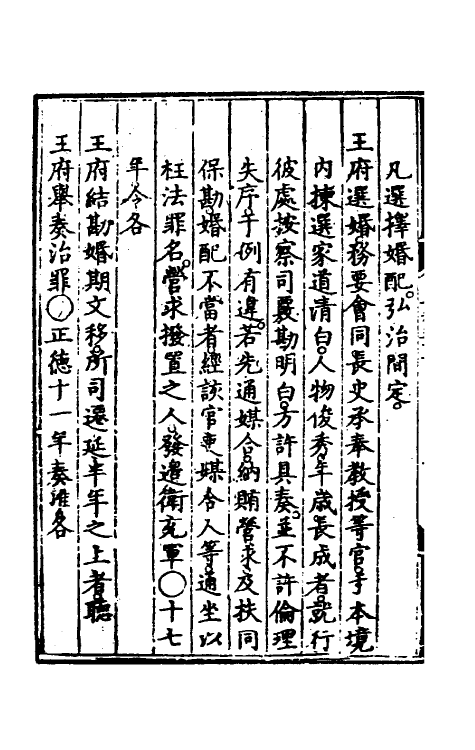 凡選擇婚配。弘治間定。
王府選婚。務要會同長史承奉教授等官。于本境
内揀選家道清白。人物俊秀。年歲長成者。就行
彼處按察司覈勘明白。方許具奏。並不許倫理
失序。于例有違。若先通媒合。納賄營求。及扶同
保勘。婚配不當者。經該官吏。媒合人等。通坐以
枉法罪名。營求撥置之人。發邊衛充軍〇十七
年令各
王府結勘婚期文移。所司遷延半年之上者。聽
王府舉奏治罪〇正德十一年奏准。各